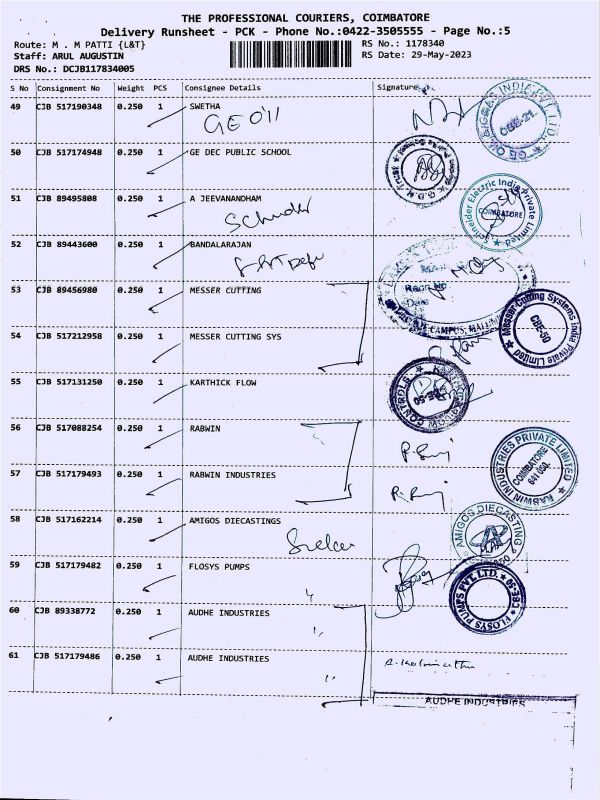 THE PROFESSIONAL COURIERS, COIMBATORE
Delivery Runsheet - PCK - Phone No.:0422-3505555 - Page No.:5
Route: M . M PATTI {L&T} RS No.: 1178340
Staff: ARUL AUGUSTIN RS Date: 29-May-2023
DRS No.: DCJB117834005
S No Consignment No Weight PCS Consignee Details Signature
49 CJB 517190348 0.250 1 SWETHA
50 CJB 517174948 0.250 1 GE DEC PUBLIC SCHOOL
51 CJB 89495808 0.250 1 A JEEVANANDHAM
Schneider Electric India Private Limited
COIMBATORE
52 CJB 89443600 0.250 1 BANDALARAJAN
53 CJB 89456980 0.250 1 MESSER CUTTING
Date
CAMPUS,
Messer Cutting Systems India Private Limited
CBE-50
54 CJB 517212958 1 0.250 MESSER CUTTING SYS
55 CJB 517131250 0.250 1 KARTHICK FLOW
CONTROLS
56 CJB 517088254 0.250 1 RABWIN
RABWIN INDUSTRIES PRIVATE LIMITED
COIMBATORE
57 CJB 517179493 0.250 1 RABWIN INDUSTRIES
58 CJB 517162214 0.250 1 AMIGOS DIECASTINGS
AMIGOS DIECASTING
59 CJB 517179482 0.250 1 FLOSYS PUMPS
FLOSYS PUMPS PVT. LTD. CBE-50
60 CJB 89338772 0.250 1 AUDHE INDUSTRIES
61 CJB 517179486 0.250 1 AUDHE INDUSTRIES
AUDHE INDUSTRIES